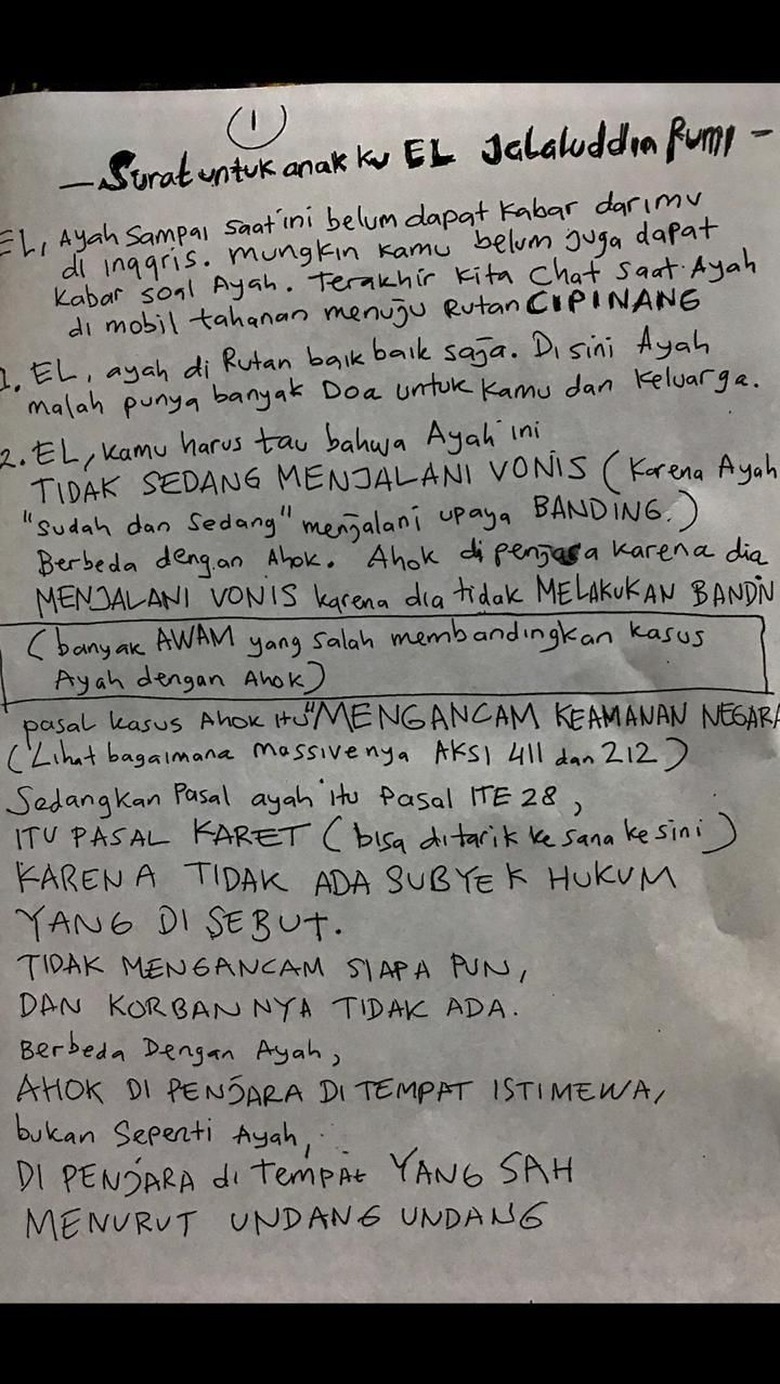 1
- Surat untuk anak ku EL Jalaluddin Rumi -
EL, Ayah sampai saat ini belum dapat kabar darimu
di inggris. mungkin kamu belum juga dapat
kabar soal Ayah. Terakhir kita Chat saat Ayah
di mobil tahanan menuju Rutan CIPINANG
1. EL, ayah di Rutan baik baik saja. Disini Ayah
malah punya banyak Doa untuk kamu dan keluarga.
2. EL, kamu harus tau bahwa Ayah ini
TIDAK SEDANG MENJALANI VONIS (karena Ayah
"sudah dan sedang" menjalani upaya BANDING.)
Berbeda dengan Ahok. Ahok dipenjara karena dia
MENJALANI VONIS karena dia tidak MELAKUKAN BANDIN
(banyak AWAM yang salah membandingkan kasus
Ayah dengan Ahok)
pasal kasus Ahok itu "MENGANCAM KEAMANAN NEGARA
(Lihat bagaimana massivenya AKSI 411 dan 212)
Sedangkan Pasal ayah itu Pasal ITE 28,
ITU PASAL KARET (bisa ditarik ke sana ke sini)
KARENA TIDAK ADA SUBYEK HUKUM
YANG DI SEBUT.
TIDAK MENGANCAM SIAPA PUN,
DAN KORBAN NYA TIDAK ADA.
Berbeda Dengan Ayah,
AHOK DI PENJARA DI TEMPAT ISTIMEWA,
bukan Seperti Ayah,
DI PENJARA di TEMPAt YANG SAH
MENURUT UNDANG UNDANG